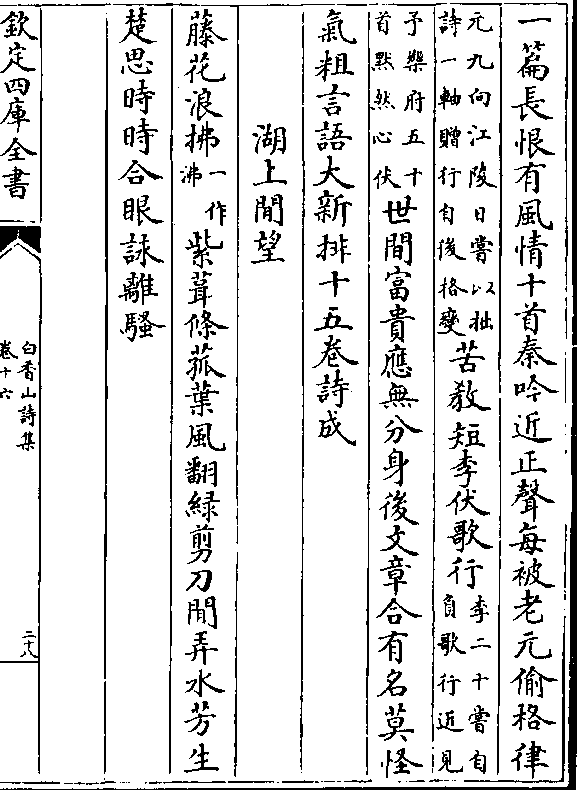 一篇長恨有風情十首秦吟近正聲每被老元偷格律
元九向江陵日嘗以拙
詩一軸贈行自後格變
苦教短李伏歌行
李二十嘗自
負歌行近見
予樂府五十
首默然心伏
世間富貴應無分身後文章合有名莫怪
氣粗言語大新排十五卷詩成
湖上閒望
藤花浪拂
一作
沸
紫茸條菰葉風翻緑剪刀閒弄水芳生
楚思時時合眼詠離騷
欽定四庫全書
白香山詩集
卷十六
二八